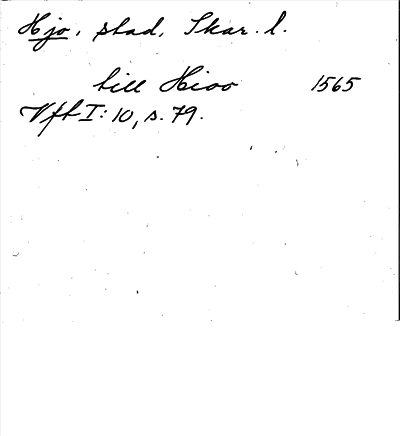 Hjo, stad, Skar. l.
till Hioo 1565
Vft I: 10, s. 79.